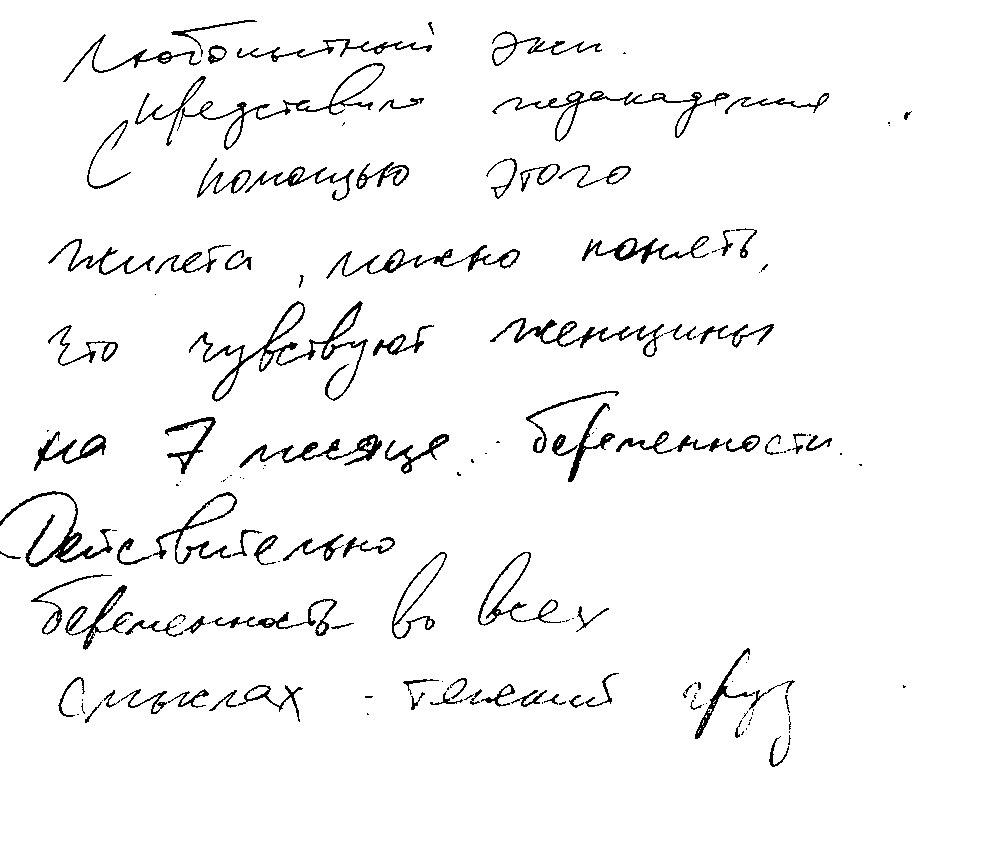 Любопытный эксп.
представила медакадемия.
С помощью этого
жилета, можно понять,
что чувствуют женщины
на 7 месяце беременности
Действительно
беременность во всех
смыслах - тяжкий груз